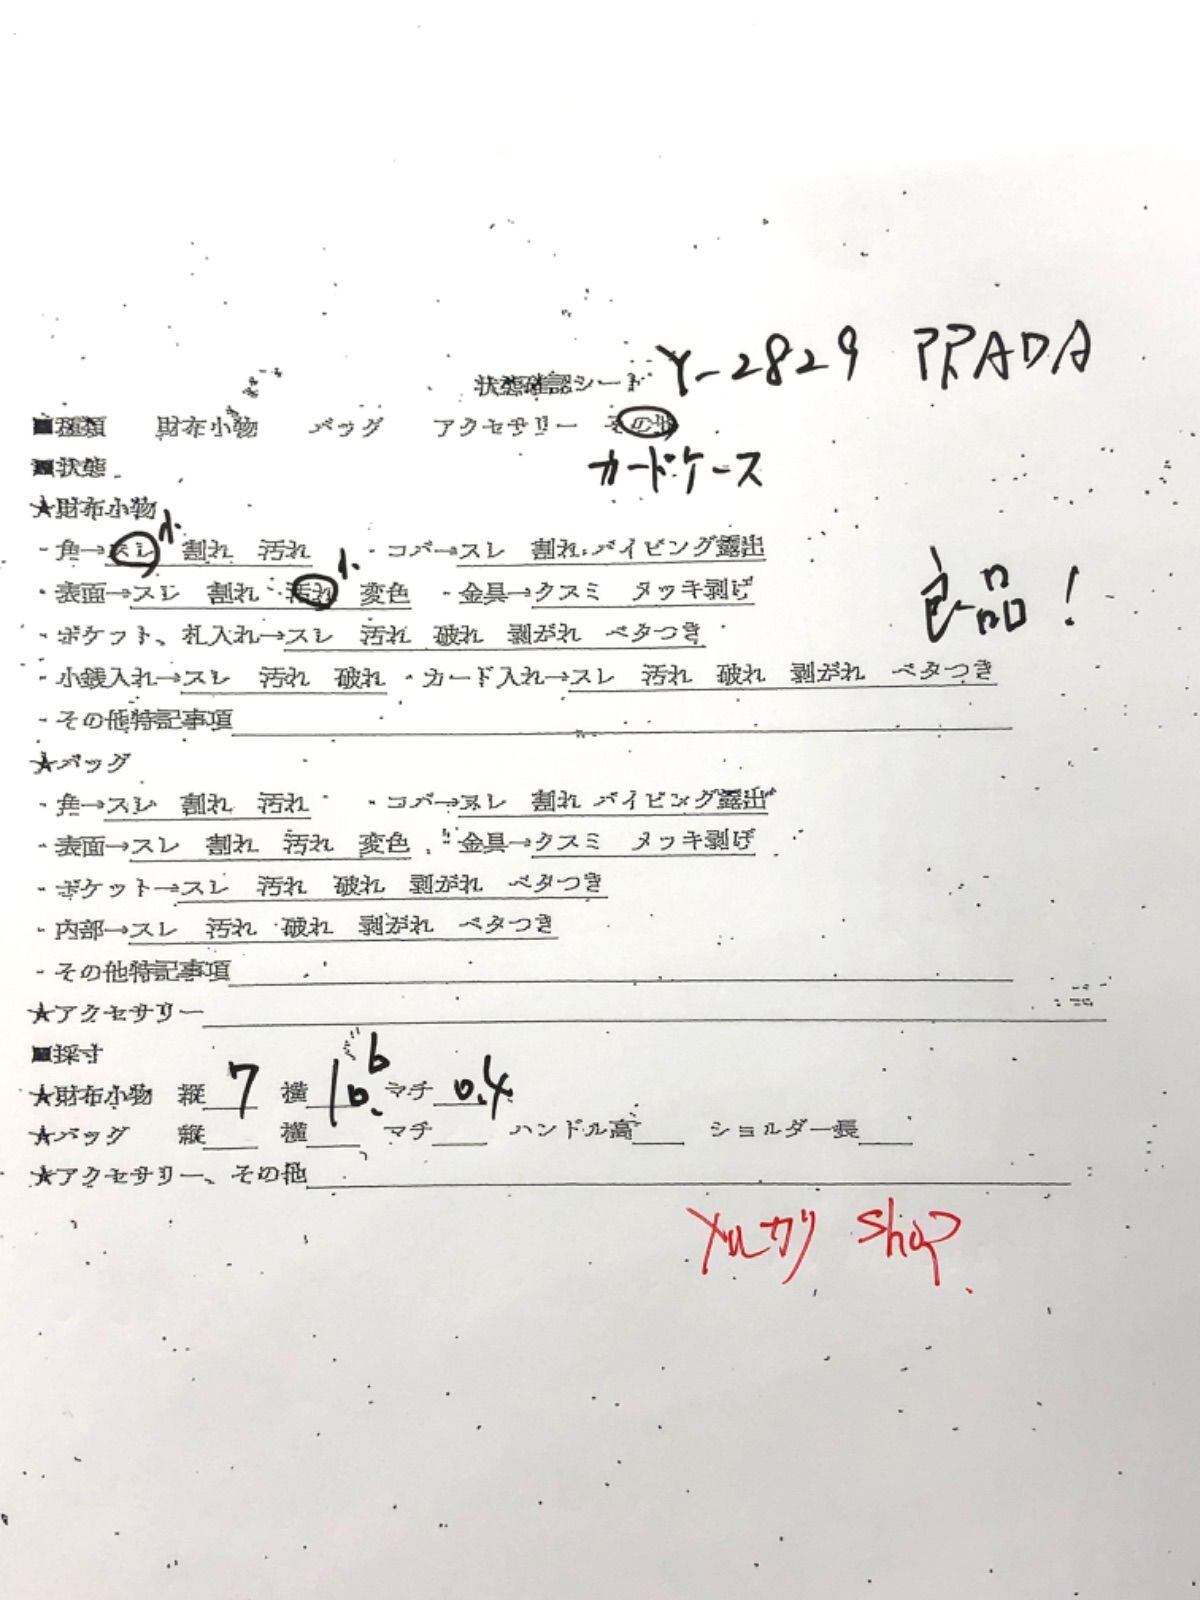 状態確認シート Y-2829 PRADA
■種類 財布小物 バッグ アクセサリー その他
カードケース
■状態
★財布小物
・角→スレ 小 割れ 汚れ ・コバ→スレ 割れ パイピング露出
・表面→スレ 割れ 汚れ 小 変色 ・金具→クスミ メッキ剥げ
良品!
・ポケット、札入れ→スレ 汚れ 破れ 剥がれ ベタつき
・小銭入れ→スレ 汚れ 破れ ・カード入れ→スレ 汚れ 破れ 剥がれ ベタつき
・その他特記事項
★バッグ
・角→スレ 割れ 汚れ ・コバ→スレ 割れ パイピング露出
・表面→スレ 割れ 汚れ 変色 ・金具→クスミ メッキ剥げ
・ポケット→スレ 汚れ 破れ 剥がれ ベタつき
・内部→スレ 汚れ 破れ 剥がれ ベタつき
・その他特記事項
★アクセサリー
■採寸
★財布小物 縦 7 横 10.6 マチ 0.4
★バッグ 縦 横 マチ ハンドル高 ショルダー長
★アクセサリー、その他
shop